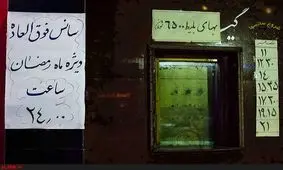 سانس فوق العاده
ویژه ماه رمضان
ساعت
۲۴/۰۰
بهای بلیط ۶۵۰۰
شروع سانس
۱۱
۱۲۳۰
۱۴
۱۵۳۵
۱۷۳۰
۱۹۱۵
۲۱